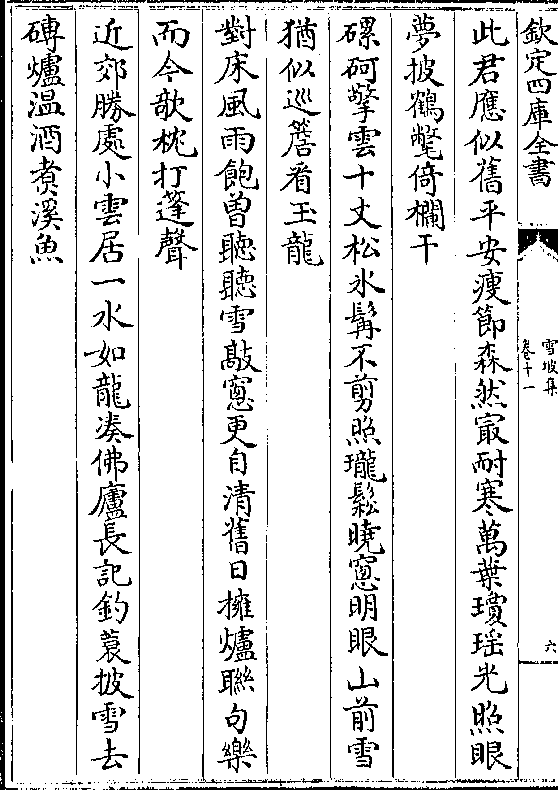 欽定四庫全書
雪坡集
卷十一
六
此君應似舊平安瘦節森然㝡耐寒萬葉瓊瑶光照眼
夢披鶴氅倚欄干
磥砢擎雲十丈松氷髯不剪照瓏鬆曉窻明眼山前雪
猶似巡簷看玉龍
對床風雨飽曽聽聽雪敲窻更自清舊日擁爐聯句樂
而今欹枕打蓬聲
近郊勝處小雲居一水如龍凑佛廬長記釣蓑披雪去
磚爐温酒煮溪魚